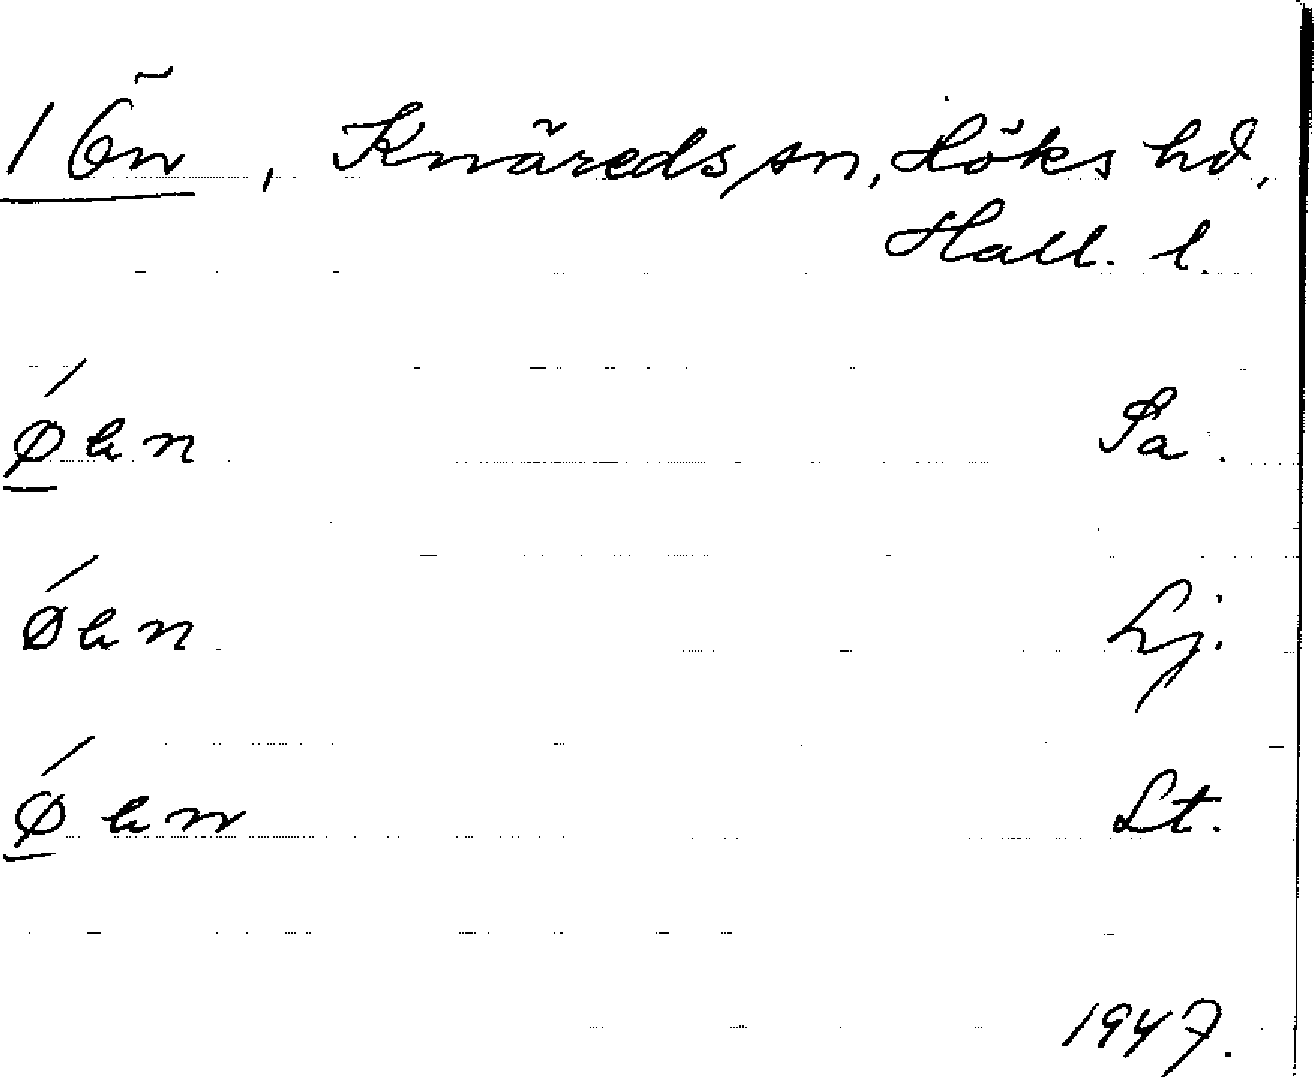 1 Ön, Knäreds sn, Höks hd,
Hall. l.
Øen Sa.
Øen Lj.
Øen Lt.
1947.